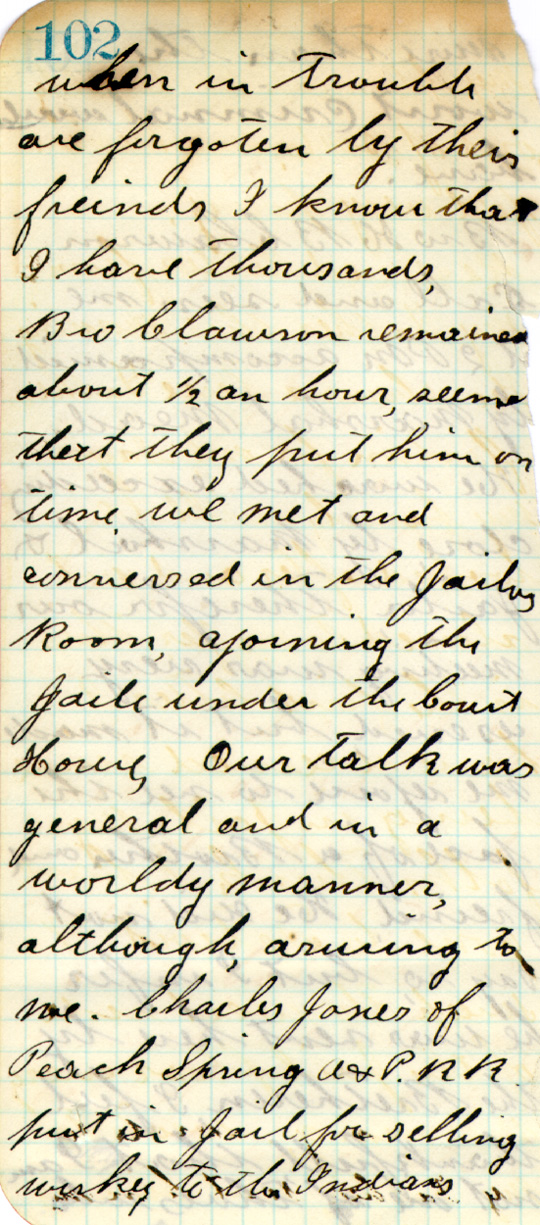 102
when in trouble
are forgoten by their
freinds I know that
I have thousands,
Bro Clawson remained
about 1/2 an hour, seems
that they put him on
time, we met and
conversed in the Jailors
Room, ajoining the
Jaile under the Court
House, Our talk was
general and in a
worldy manner,
although, amuing to
me. Charles Jones of
Peach Spring A & P. R R
put in Jail for selling
wiskey to the Indians